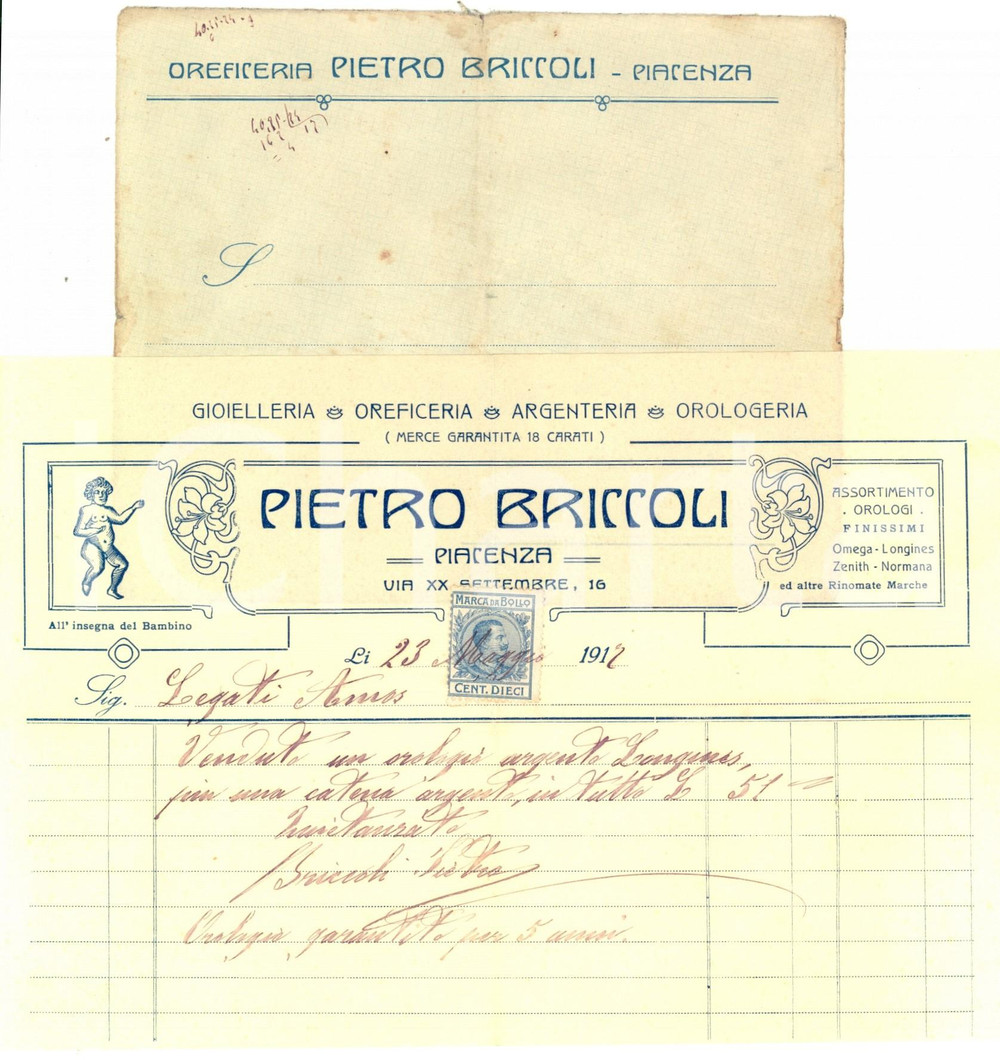 40.25-24-9
OREFICERIA PIETRO BRICCOLI - PIACENZA
40,25-/24
162 17
= 4
S
GIOIELLERIA OREFICERIA ARGENTERIA OROLOGERIA
( MERCE GARANTITA 18 CARATI )
PIETRO BRICCOLI
PIACENZA
VIA XX SETTEMBRE, 16
All' insegna del Bambino
ASSORTIMENTO
. OROLOGI .
FINISSIMI
Omega - Longines
Zenith - Normana
ed altre Rinomate Marche
MARCA DA BOLLO
CENT. DIECI
Li 23 Maggio 1912
Sig. Legati Amos
Venduto un orologio argento Longines,
più una catena argento, in tutto L 51
Quietanzato
Briccoli Pietro
Orologio garantito per 5 anni.